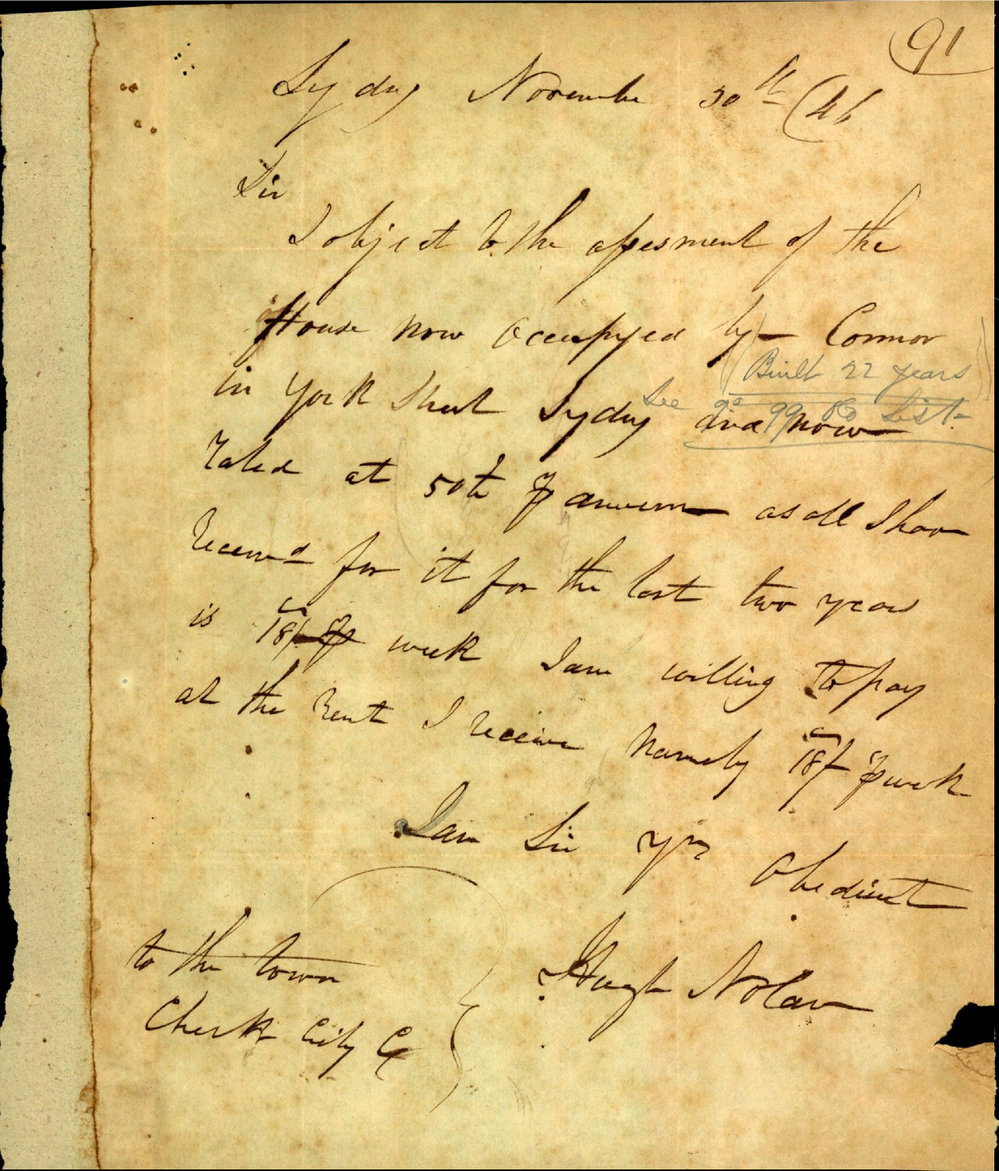 91
Sydney November 30th /46
Sir
I object to the assesment of the
House now occupyed by – Connor
(Built 22 years)
in York Street Sydney and now
See 99 List
rated at 50£ p annum as all I have
Received for it for the last two years
is 18/ p week I am willing to pay
at the Rent I receive Namely 18/ p week
I am Sir yrs Obedient
Hugh Nolan
to the town
Clerk City &